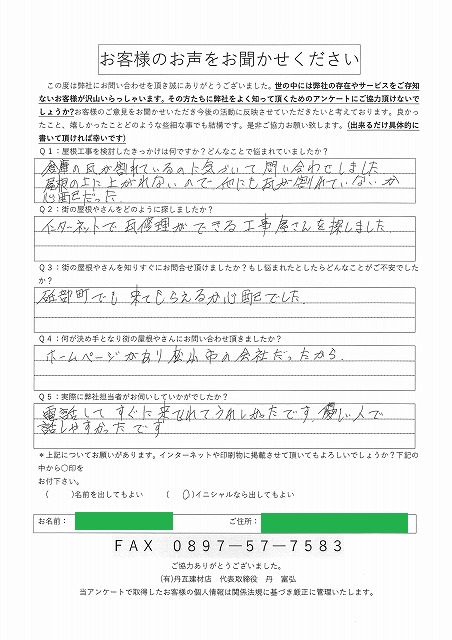 お客様のお声をお聞かせください
この度は弊社にお問い合わせを頂き誠にありがとうございました。世の中には弊社の存在やサービスをご存知
ないお客様が沢山いらっしゃいます。その方たちに弊社をよく知って頂くためのアンケートにご協力頂けないで
しょうか?お客様のご意見をお聞かせいただき今後の活動に反映させていただきたいと考えております。良かっ
たこと、嬉しかったことどのような些細な事でも結構です。是非ご協力お願い致します。(出来るだけ具体的に
書いて頂ければ幸いです)
Q1:屋根工事を検討したきっかけは何ですか?どんなことで悩まれていましたか?
倉庫の瓦が割れているのに気がついて問い合わせしました
屋根の上に上がれないので他にも瓦が割れていないか
心配だった
Q2:街の屋根やさんをどのように探しましたか?
インターネットで瓦修理ができる工事屋さんを探しました
Q3:街の屋根やさんを知りすぐにお問合せ頂けましたか?もし悩まれたとしたらどんなことがご不安でした
か?
砥部町でも来てもらえるか心配でした
Q4:何が決め手となり街の屋根やさんにお問い合わせ頂きましたか?
ホームページがあり松山市の会社だったから
Q5:実際に弊社担当者がお伺いしていかがでしたか?
電話してすぐに来てくれてうれしかったです。優しい人で
話しやすかったです
*上記についてお願いがあります。インターネットや印刷物に掲載させて頂いてもよろしいでしょうか?下記の
中から〇印を
お付下さい。
( )名前を出してもよい ( 〇 )イニシャルなら出してもよい
お名前: ご住所:
FAX 0897-57-7583
ご協力ありがとうございました。
(有)丹瓦建材店 代表取締役 丹 富弘
当アンケートで取得したお客様の個人情報は関係法規に基づき厳正に管理いたします。